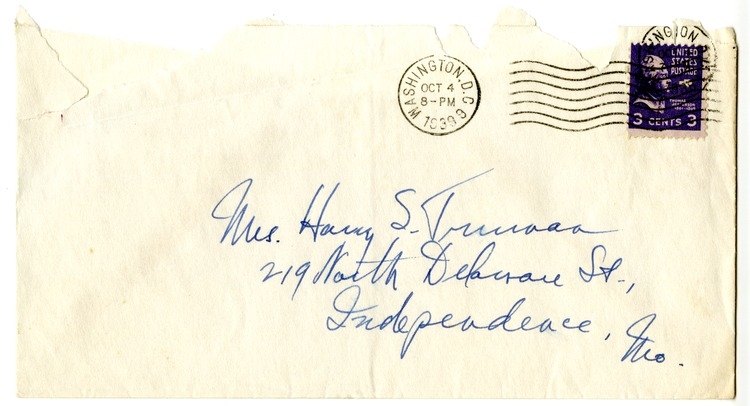 WASHINGTON, D.C.
OCT 4
8-PM
1939
UNITED
STATES
POSTAGE
THOMAS
JEFFERSON
3 CENTS 3
Mrs. Harry S. Truman
219 North Delaware St.,
Independence,
Mo.